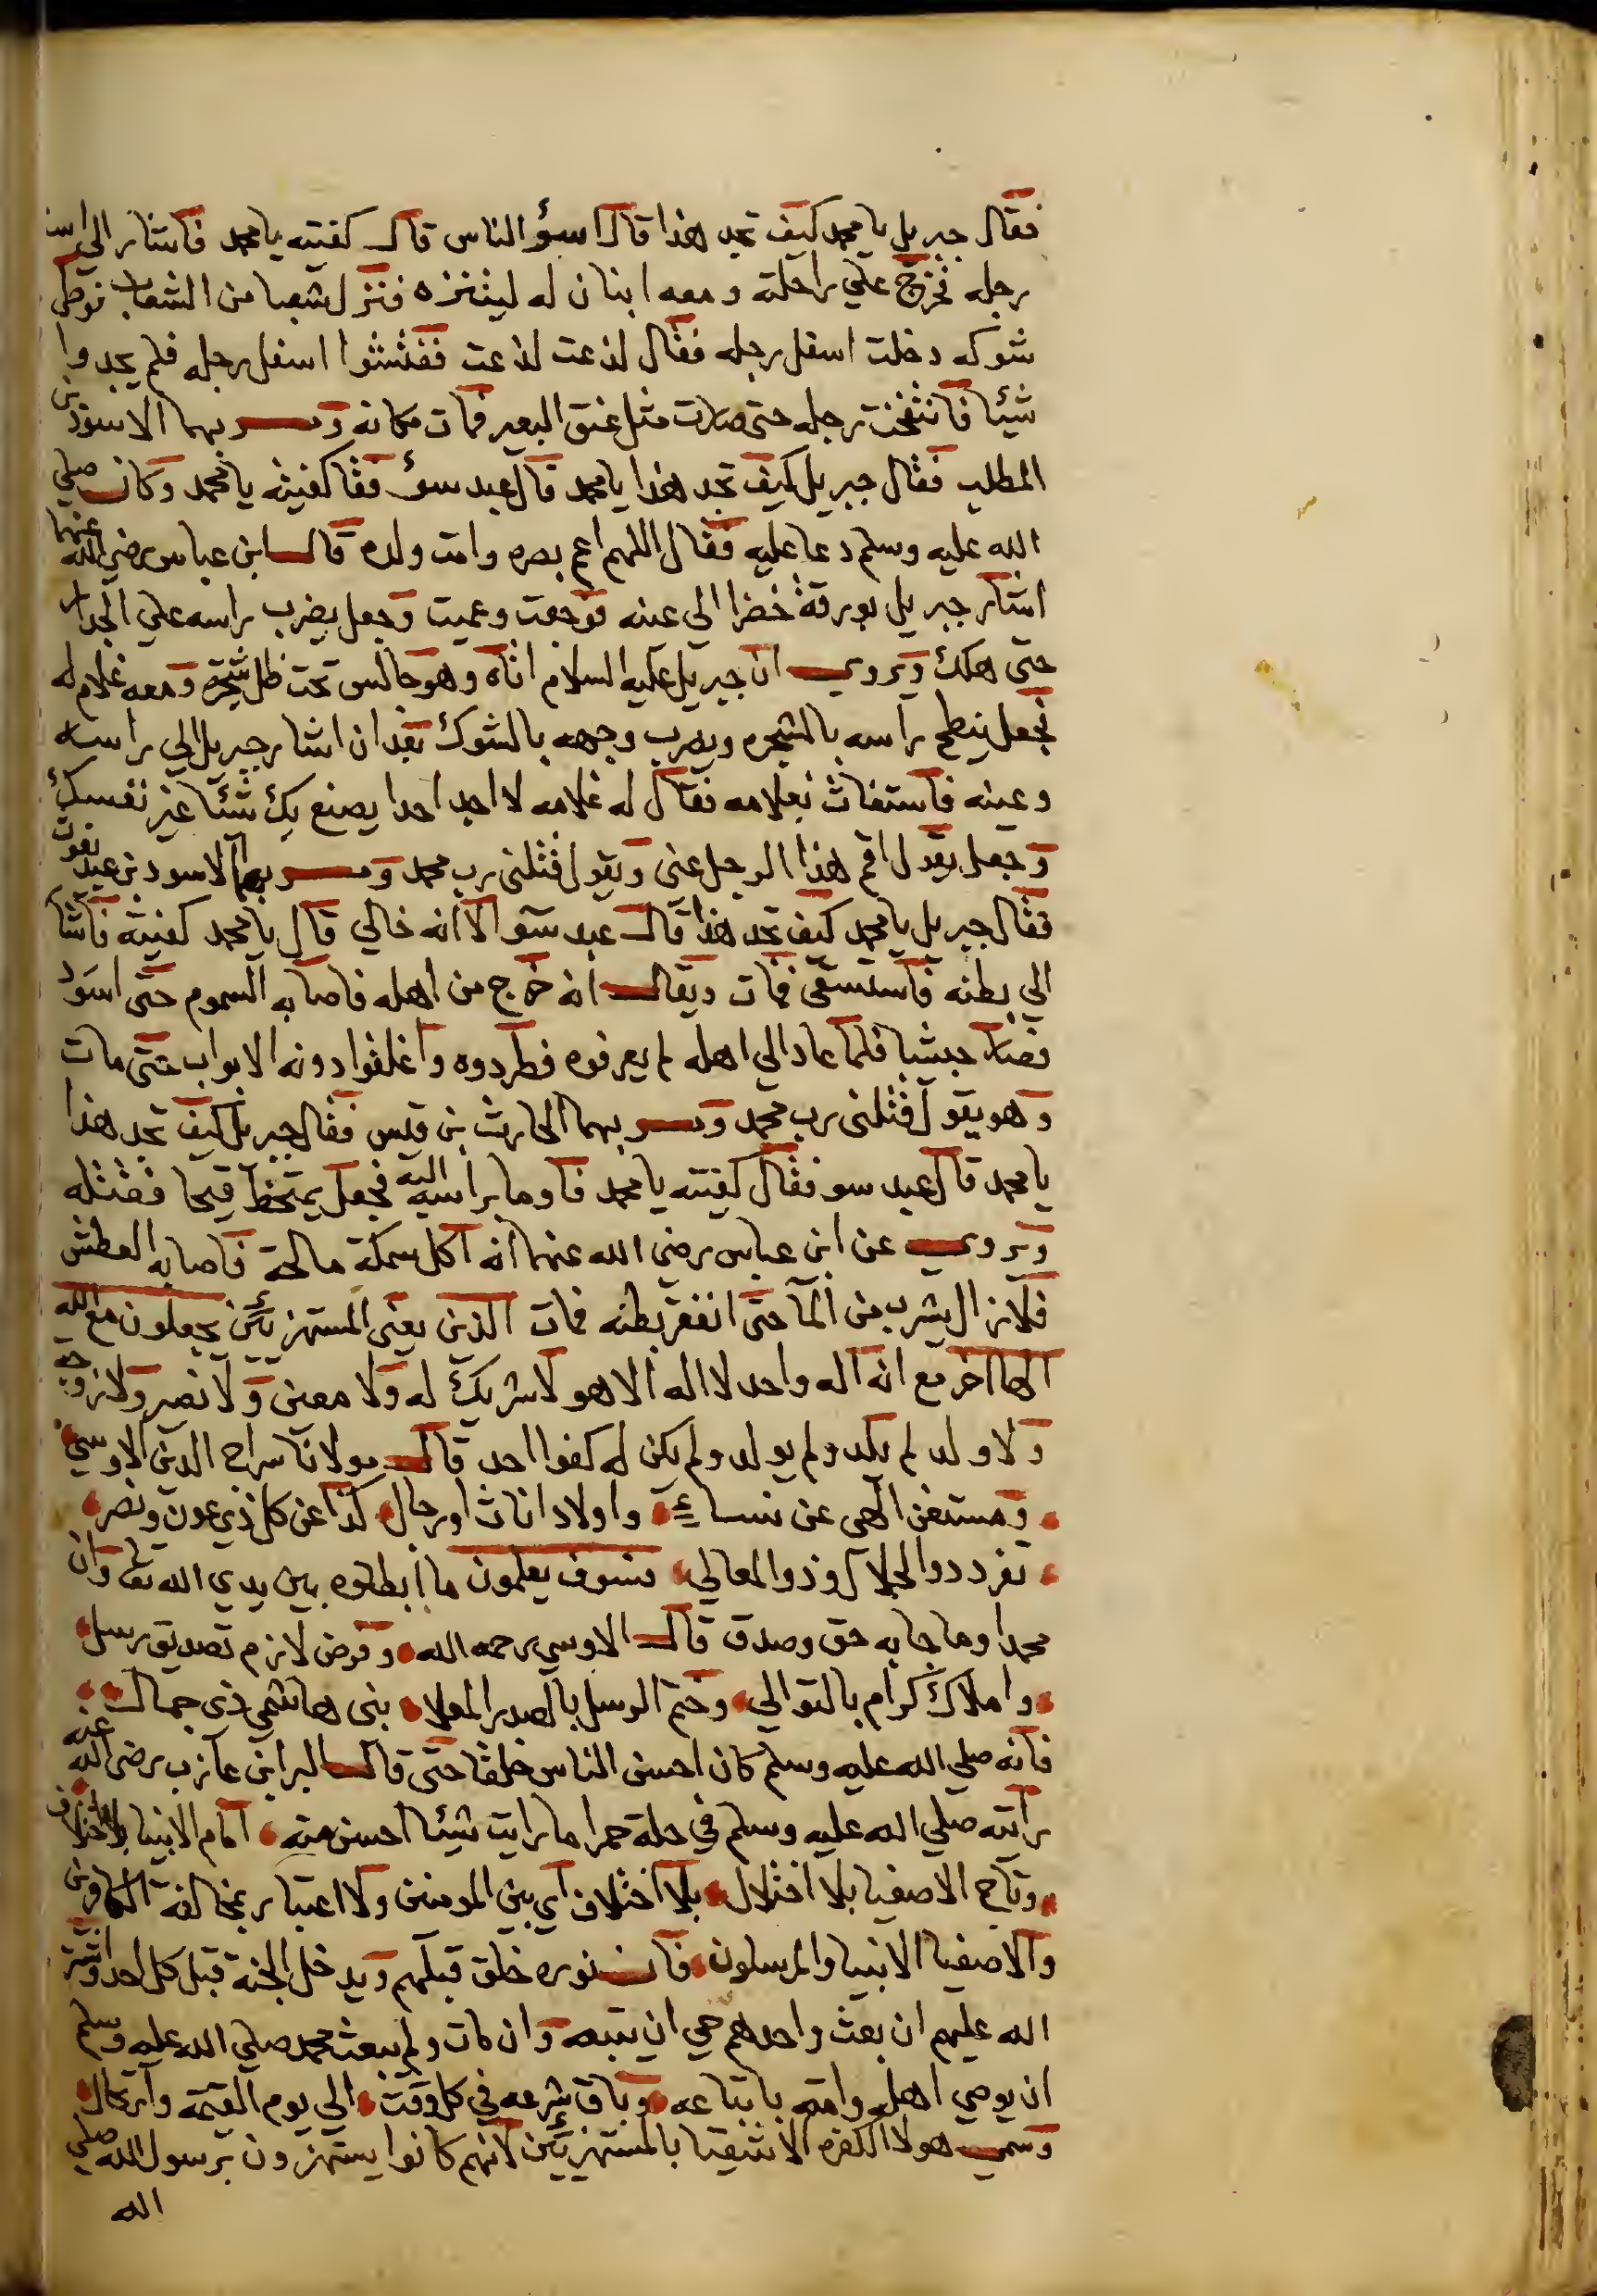 فقال جبريل يا محمد كيف تجد هذا قال اسوؤ الناس قال كفيته يا محمد فاشار الى اسفل
رجله فخرج على راحلته ومعه ابنان له ليتنزه فنزل شعبا من الشعاب فوطى
شوكه دخلت اسفل رجله فقال لدغت لدغت ففتشوا اسفل رجله فلم يجدوا
شيئا فانتفخت رجله حتى صارت مثل عنق البعير فمات مكانه ومر بهما الاسود بن
المطلب فقال جبريل كيف تجد هذا يا محمد قال عبد سوؤ فقا كفيته يا محمد وكان صلى
الله عليه وسلم دعا عليه فقال اللهم اعم بصره وامت ولده قال ابن عباس رضى الله عنهما
اشار جبريل بورقة خضرا الى عينه فوجعت وعميت وجعل يضرب راسه على الجدار
حتى هلك ويروى ان جبريل عليه السلام اتاه وهو جالس تحت ظل شجرة ومعه غلام له
فجعل ينطح راسه بالشجره ويضرب وجهه بالشوك بعد ان اشار جبريل الى راسه
وعينه فاستغاث بغلامه فقال له غلامه لا اجد احدا يصنع بك شيئا غير نفسك
وجعل يقول اقم هذا الرجل عنى ويقول قتلنى رب محمد ومر بهما الاسود بن عبد يغوث
فقال جبريل يا محمد كيف تجد هذا قال عبد سوء الا انه خالي قال يا محمد كفيته فاشا
الى بطنه فاستسقى فمات ويقال انه خرج من اهله فاصابه السموم حتى اسود
فصار حبشيا فلما عاد الى اهله لم يعرفوه فطردوه واغلقوا دونه الابواب حتى مات
وهو يقول قتلنى رب محمد ومر بهما الحارث بن قيس فقال جبريل كيف تجد هذا
يا محمد قال عبد سو فقال كفيته يا محمد فاوما براسه اليه فجعل يمتخط قيحا فقتله
ويروى عن ابن عباس رضى الله عنهما انه اكل سمكة مالحة فاصابه العطش
فلا زال يشرب من المآ حتى انفقر بطنه فمات الذين يعنى المستهزئين يجعلون مع الله
الها اخر مع انه اله واحد لا اله الا هو لا شريك له ولا معين ولا نصير ولا زوجه
ولا ولد لم يلد ولم يولد ولم يكن له كفوا احد قال مولانا سراج الدين الاوسي
ومستغن الهى عن نساء واولاد اناث او رجال كذا عن كل ذى عون ونصر
تفرد ذو الجلال وذو المعالى فسوف يعلمون ما ابطلوه بين يدى الله تعا وان
محمدا وما جا به حق وصدق قال الاوسي رحمه الله وفرض لازم تصديق رسل
واملاك كرام بالتوالى وختم الرسل بالصدر المعلا نبى هاشمى ذى جمال
فانه صلى الله عليه وسلم كان احسن الناس خلقا حتى قال البرا بن عازب رضى الله عنه
رايته صلى الله عليه وسلم في حلة حمرا ما رايت شيئا احسن منه امام الانبيا بلا اختلاف
وتاج الاصفيا بلا اختلال بلا اختلاف اى بين المومنين ولا اعتبار بمخالفة الكافرين
والاصفيا الانبيا والمرسلون فان نوره خلق قبلهم ويدخل الجنة قبل كل احد واشترط
الله عليهم ان بعث واحدهم حي ان يتبعه وان مات ولم يبعث محمد صلى الله عليه وسلم
ان يوصي اهله وامته باتباعه وباق شرعه في كل وقت الى يوم القيمة وارتحال
وسمى هولا الكفره الاشقيا بالمستهزئين لانهم كانوا يستهزون برسول الله صلى
الله